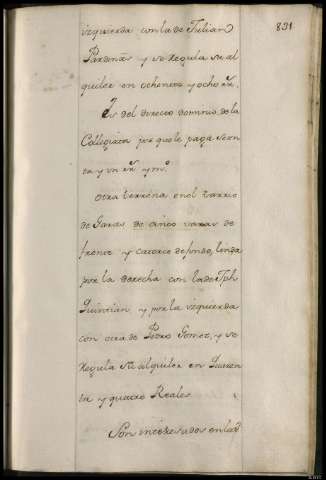 831.
izquierda con la de Julian
Pardiñas y se Regula su al
quiler en ochenta y ocho rs.
Es del directo dominio de la
Collegiata por que le paga sesen
ta y un rs. y ms.
Otra terrena en el barrio
de Garas de cinco varas de
frente y catorce de fondo, linda
por la derecha con la de Jph
Quintian, y por la izquierda
con otra de Pedro Gomez, y se
Regula su alquiler en Quaren
ta y quatro Reales
Son interesados en la d